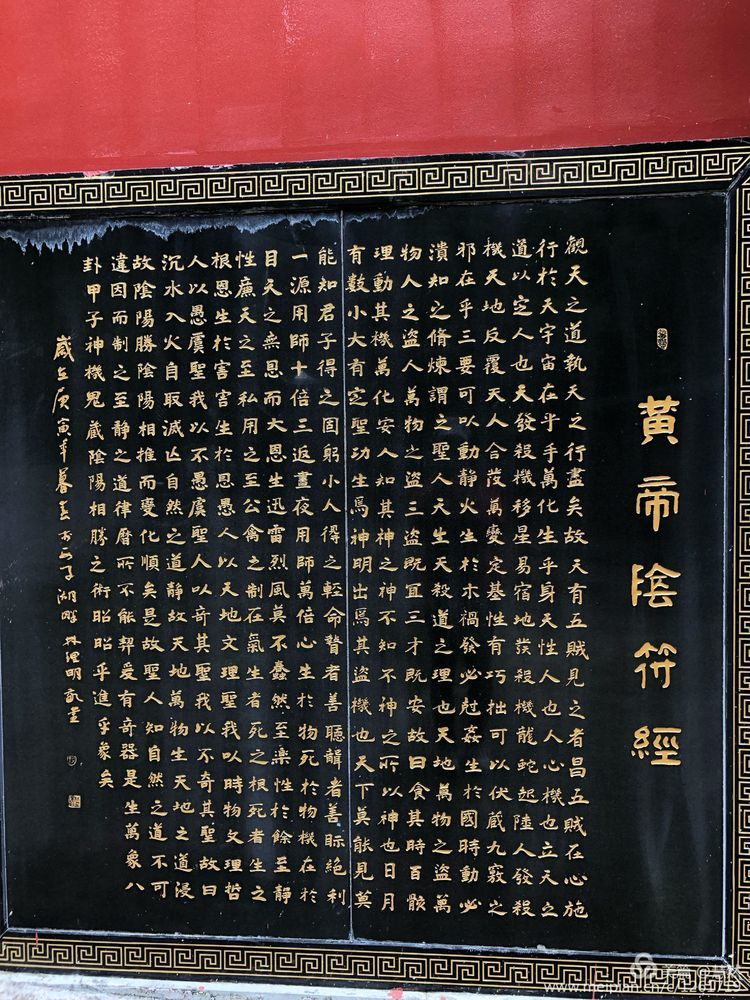 黃帝陰符經
觀天之道執天之行盡矣故天有五賊見之者昌五賊在心施
行於天宇宙在乎手萬化生乎身天性人也人心機也立天之
道以定人也天發殺機移星易宿地發殺機龍蛇起陸人發殺
機天地反覆天人合發萬變定基性有巧拙可以伏藏九竅之
邪在乎三要可以動靜火生於木禍發必剋姦生於國時動必
潰知之脩煉謂之聖人天生天殺道之理也天地萬物之盜萬
物人之盜人萬物之盜三盜既宜三才既安故曰食其時百骸
理動其機萬化安人知其神之神不知不神之所以神也日月
有數小大有定聖功生焉神明出焉其盜機也天下莫能見莫
能知君子得之固躬小人得之輕命瞽者善聽聾者善眎絕利
一源用師十倍三返晝夜用師萬倍心生於物死於物機在於
目天之無恩而大恩生迅雷烈風莫不蠢然至樂性於餘至靜
性廉天之至私用之至公禽之制在氣生者死之根死者生之
根恩生於害害生於恩愚人以天地文理聖我以時物文理哲
人以愚虞聖我以不愚虞聖人以奇其聖我以不奇其聖故曰
沉水入火自取滅亾自然之道靜故天地萬物生天地之道浸
故陰陽勝陰陽相推而變化順矣是故聖人知自然之道不可
違因而制之至靜之道律曆所不能契爰有奇器是生萬象八
卦甲子神機鬼藏陰陽相勝之術昭昭乎進乎象矣
歲在庚寅年暮春於湖畔明敬書
www.meipian.cn